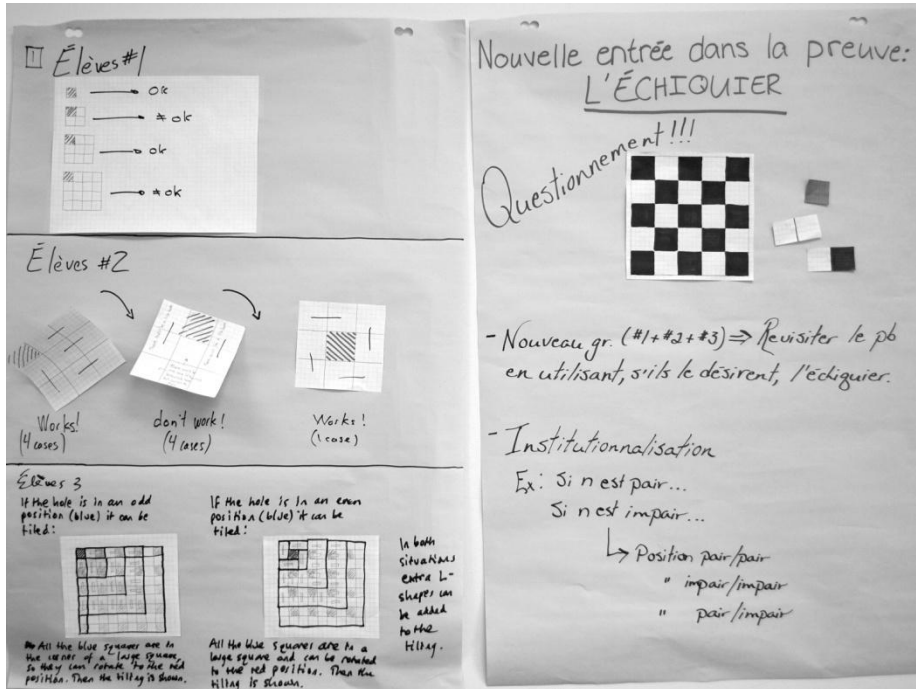 1
Élèves #1
OK
≠ ok
ok
≠ ok
Élèves #2
Works!
(4 cases)
don't work!
(4 cases)
Works!
(1 case)
Élèves 3
If the hole is in an odd
position (blue) it can be
tiled:
All the blue squares are in
the corner of a large square,
so they can rotate to the red
position. Then the tiling is shown.
If the hole is in an even
position (blue) it can be
tiled:
All the blue squares are in a
large square and can be rotated
to the red position. Then the
tiling is shown.
In both
situations
extra L-
shapes can
be added
to the
tiling.
Nouvelle entrée dans la preuve:
L'ÉCHIQUIER
Questionnement!!!
- Nouveau gr. (#1+#2+#3) ⇒ Revisiter le pb
en utilisant, s'ils le désirent, l'échiquier.
- Institutionnalisation
Ex: Si n est pair...
Si n est impair...
↳ Position pair/pair
" impair/impair
" pair/impair